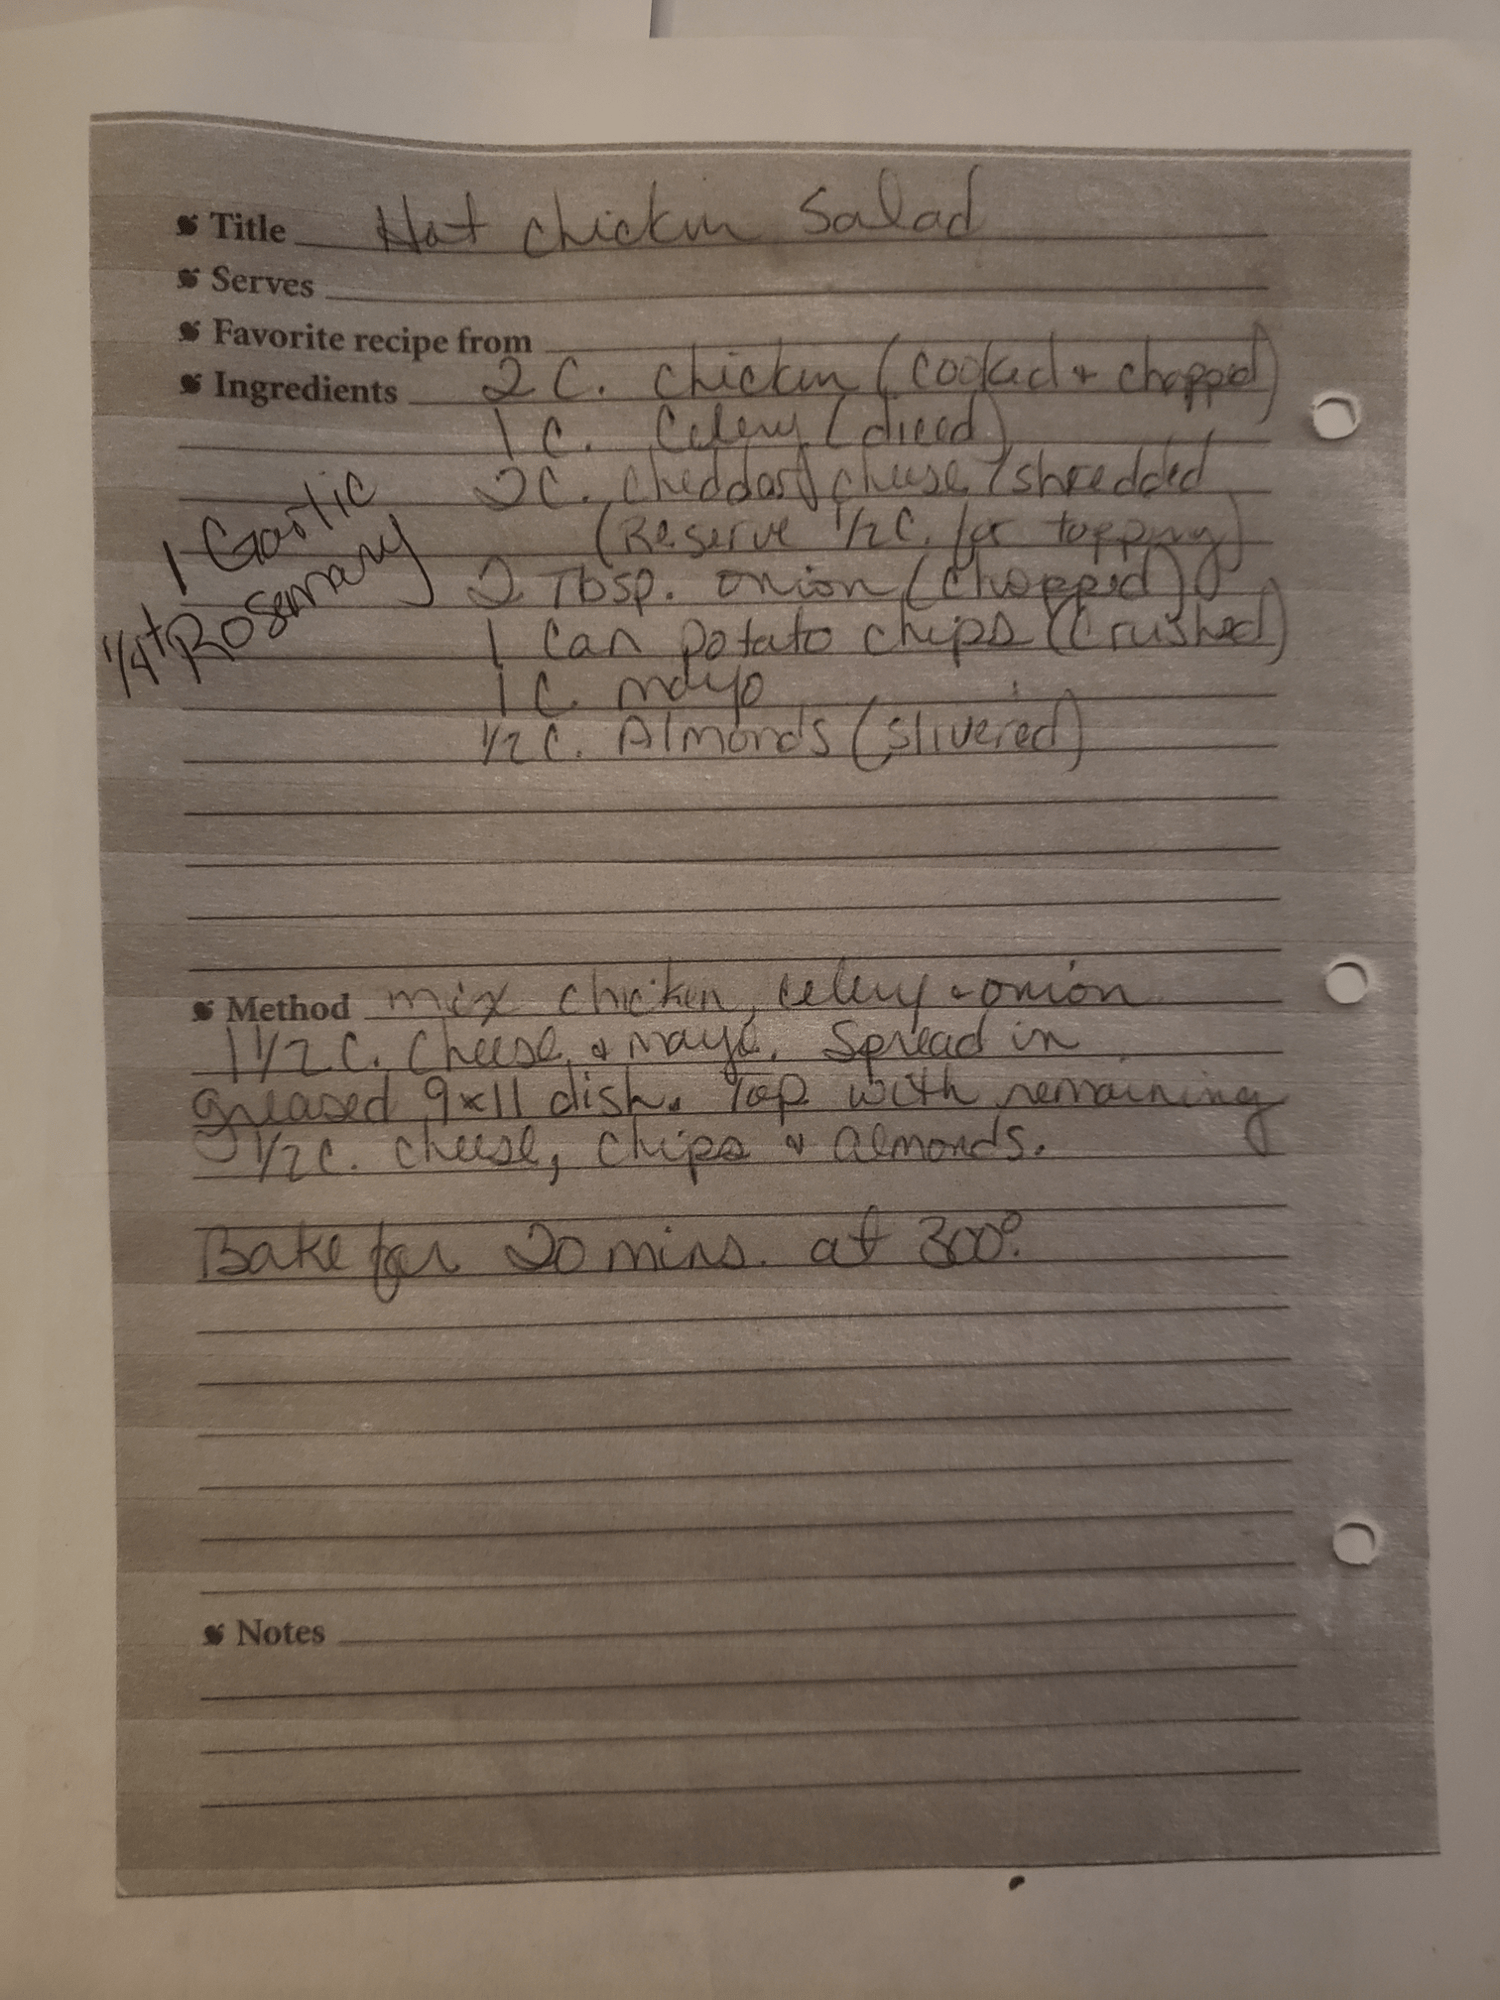 Title Hot chicken Salad
Serves
Favorite recipe from
Ingredients 2 C. chicken (cooked + chopped)
1 C. Celery (diced)
2 C. cheddar cheese / shredded
(Reserve 1/2 C. for topping)
2 Tbsp. onion (chopped)
1 Can potato chips (crushed)
1 C. mayo
1/2 C. Almonds (slivered)
1 Garlic
1/4 t Rosemary
Method mix chicken, celery + onion
1 1/2 C. cheese, + mayo. Spread in
greased 9x11 dish. Top with remaining
1/2 C. cheese, chips + almonds.
Bake for 20 mins. at 300°.
Notes